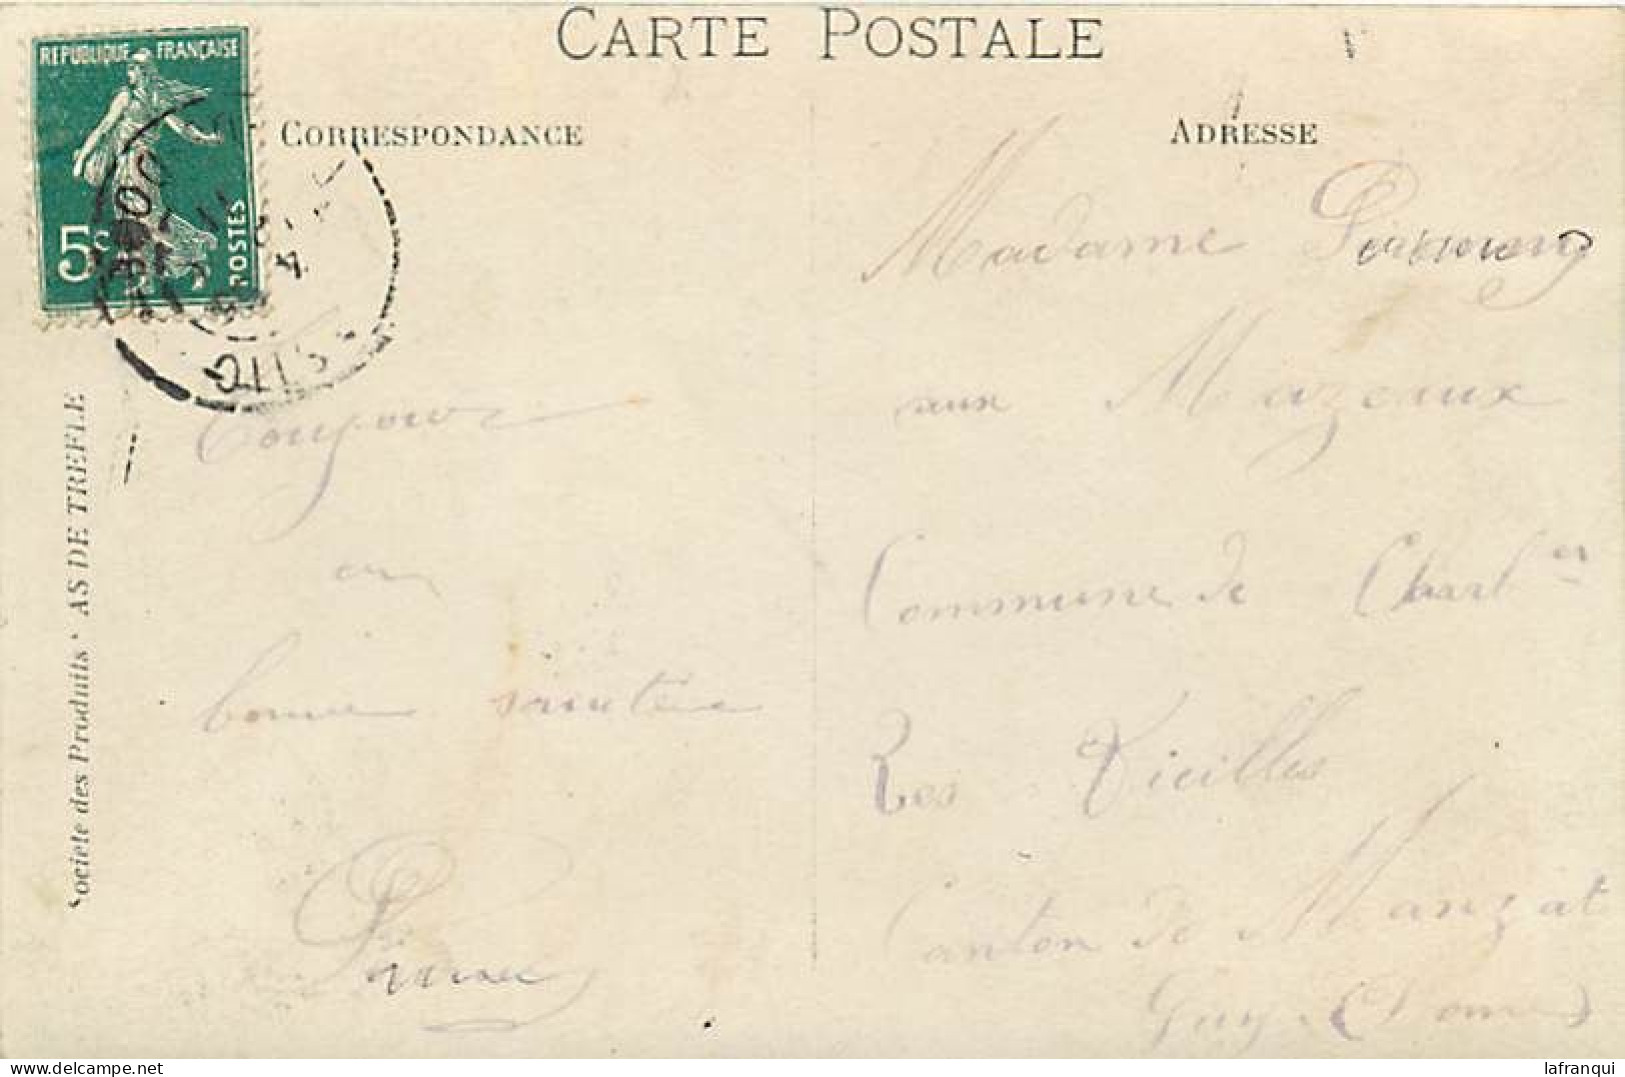 CARTE POSTALE
RÉPUBLIQUE FRANÇAISE
5c
POSTES
CORRESPONDANCE
ADRESSE
Société des Produits "AS DE TREFLE
Toujours
en
bonne santée
Madame
aux Mazeaux
Commune de
Les Vieilles
Canton de Manzat
Puy (Dome)
lafranqui @ delcampe.net